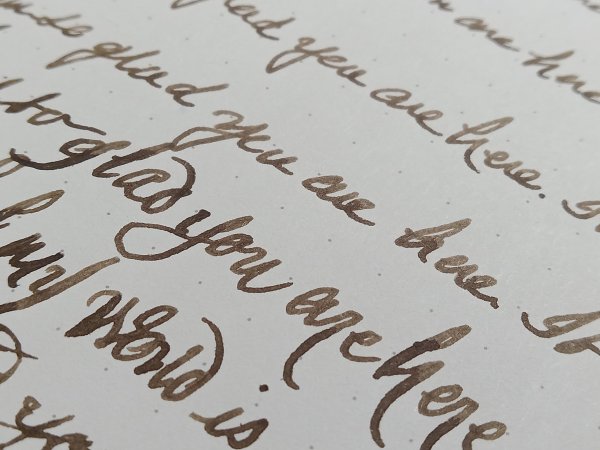 are
glad you are here.
so glad you are here. I
so glad you are here
my world is